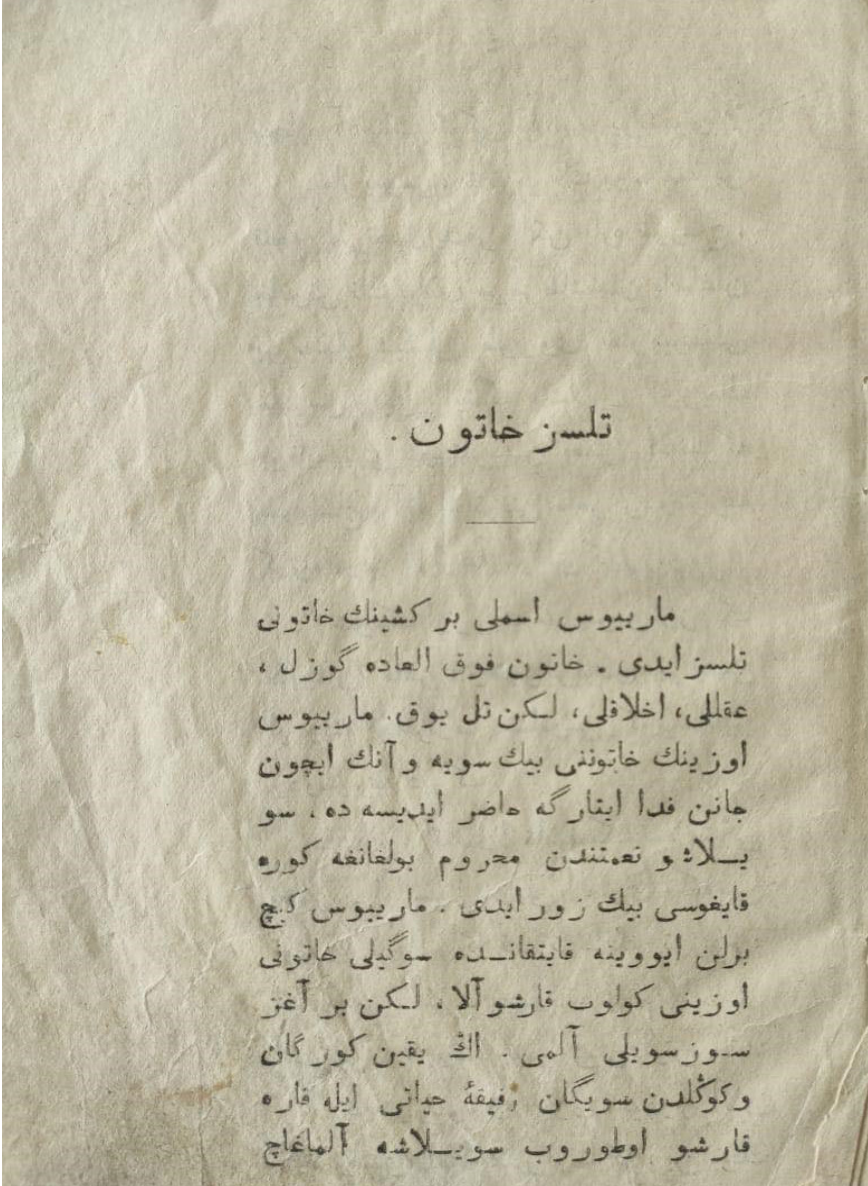 تلسز خاتون .
ماريیوس اسملی بر كشینك خاتونی
تلسز ایدی . خاتون فوق العاده گوزل ،
عقللی، اخلاقلی، لـكن تل یوق. ماریيوس
اوزینك خاتوننی بیك سویه و آنك ایچون
جانن فدا ایتارگه حاضر ایدیسه ده، سو
یـلاشو نعمتندن محروم بولغانغه كوره
قایغوسی بیك زور ایدی . ماریيوس كیچ
برلن ایووینه قایتقانـده سوگیلی خاتونی
اوزینی كولوب قارشو آلا ، لـكن بر آغز
سـوز سویلی آلمی . اڭ یقین كورگان
و كوڭلدن سویگان رفیقهٔ حیاتی ایله قاره
قارشو اوطوروب سویـلاشه آلماغاچ